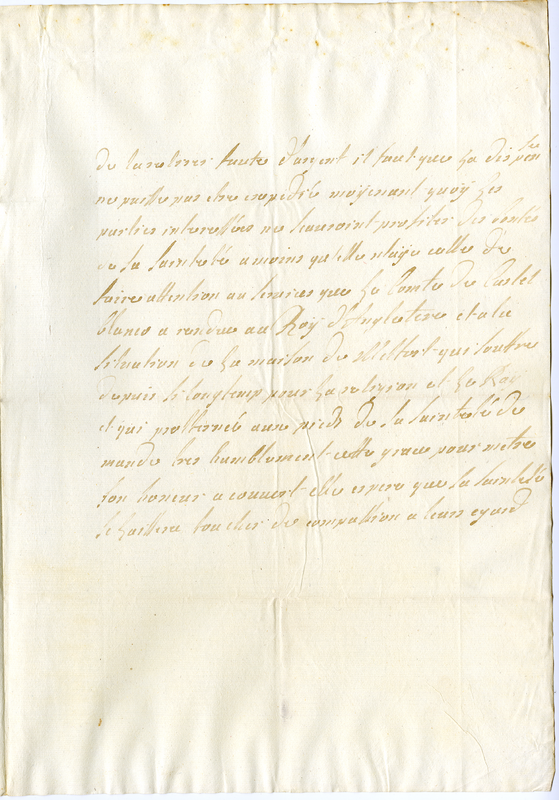 de la relever faute d'argent il faut que la dispen se
ne puisse pas etre expediée moyenant quoy les
parties interessées ne scauroint profiter des bontés
de sa Sainteté a moins qu'elle n'aÿe celle de
faire attention au services que le Comte de Castel
blanco a rendue au Roy d'Angleterre et a la
situation de la maison de Melfort qui souffre
depuis si longtemp pour la religion et le Roy
et qui prosternée aux pieds de sa Sainteté de
mande tres humblement cette grace pour metre
son honeur a couvert elle espere que sa Sainteté
se laissera toucher de compassion a leurs egard